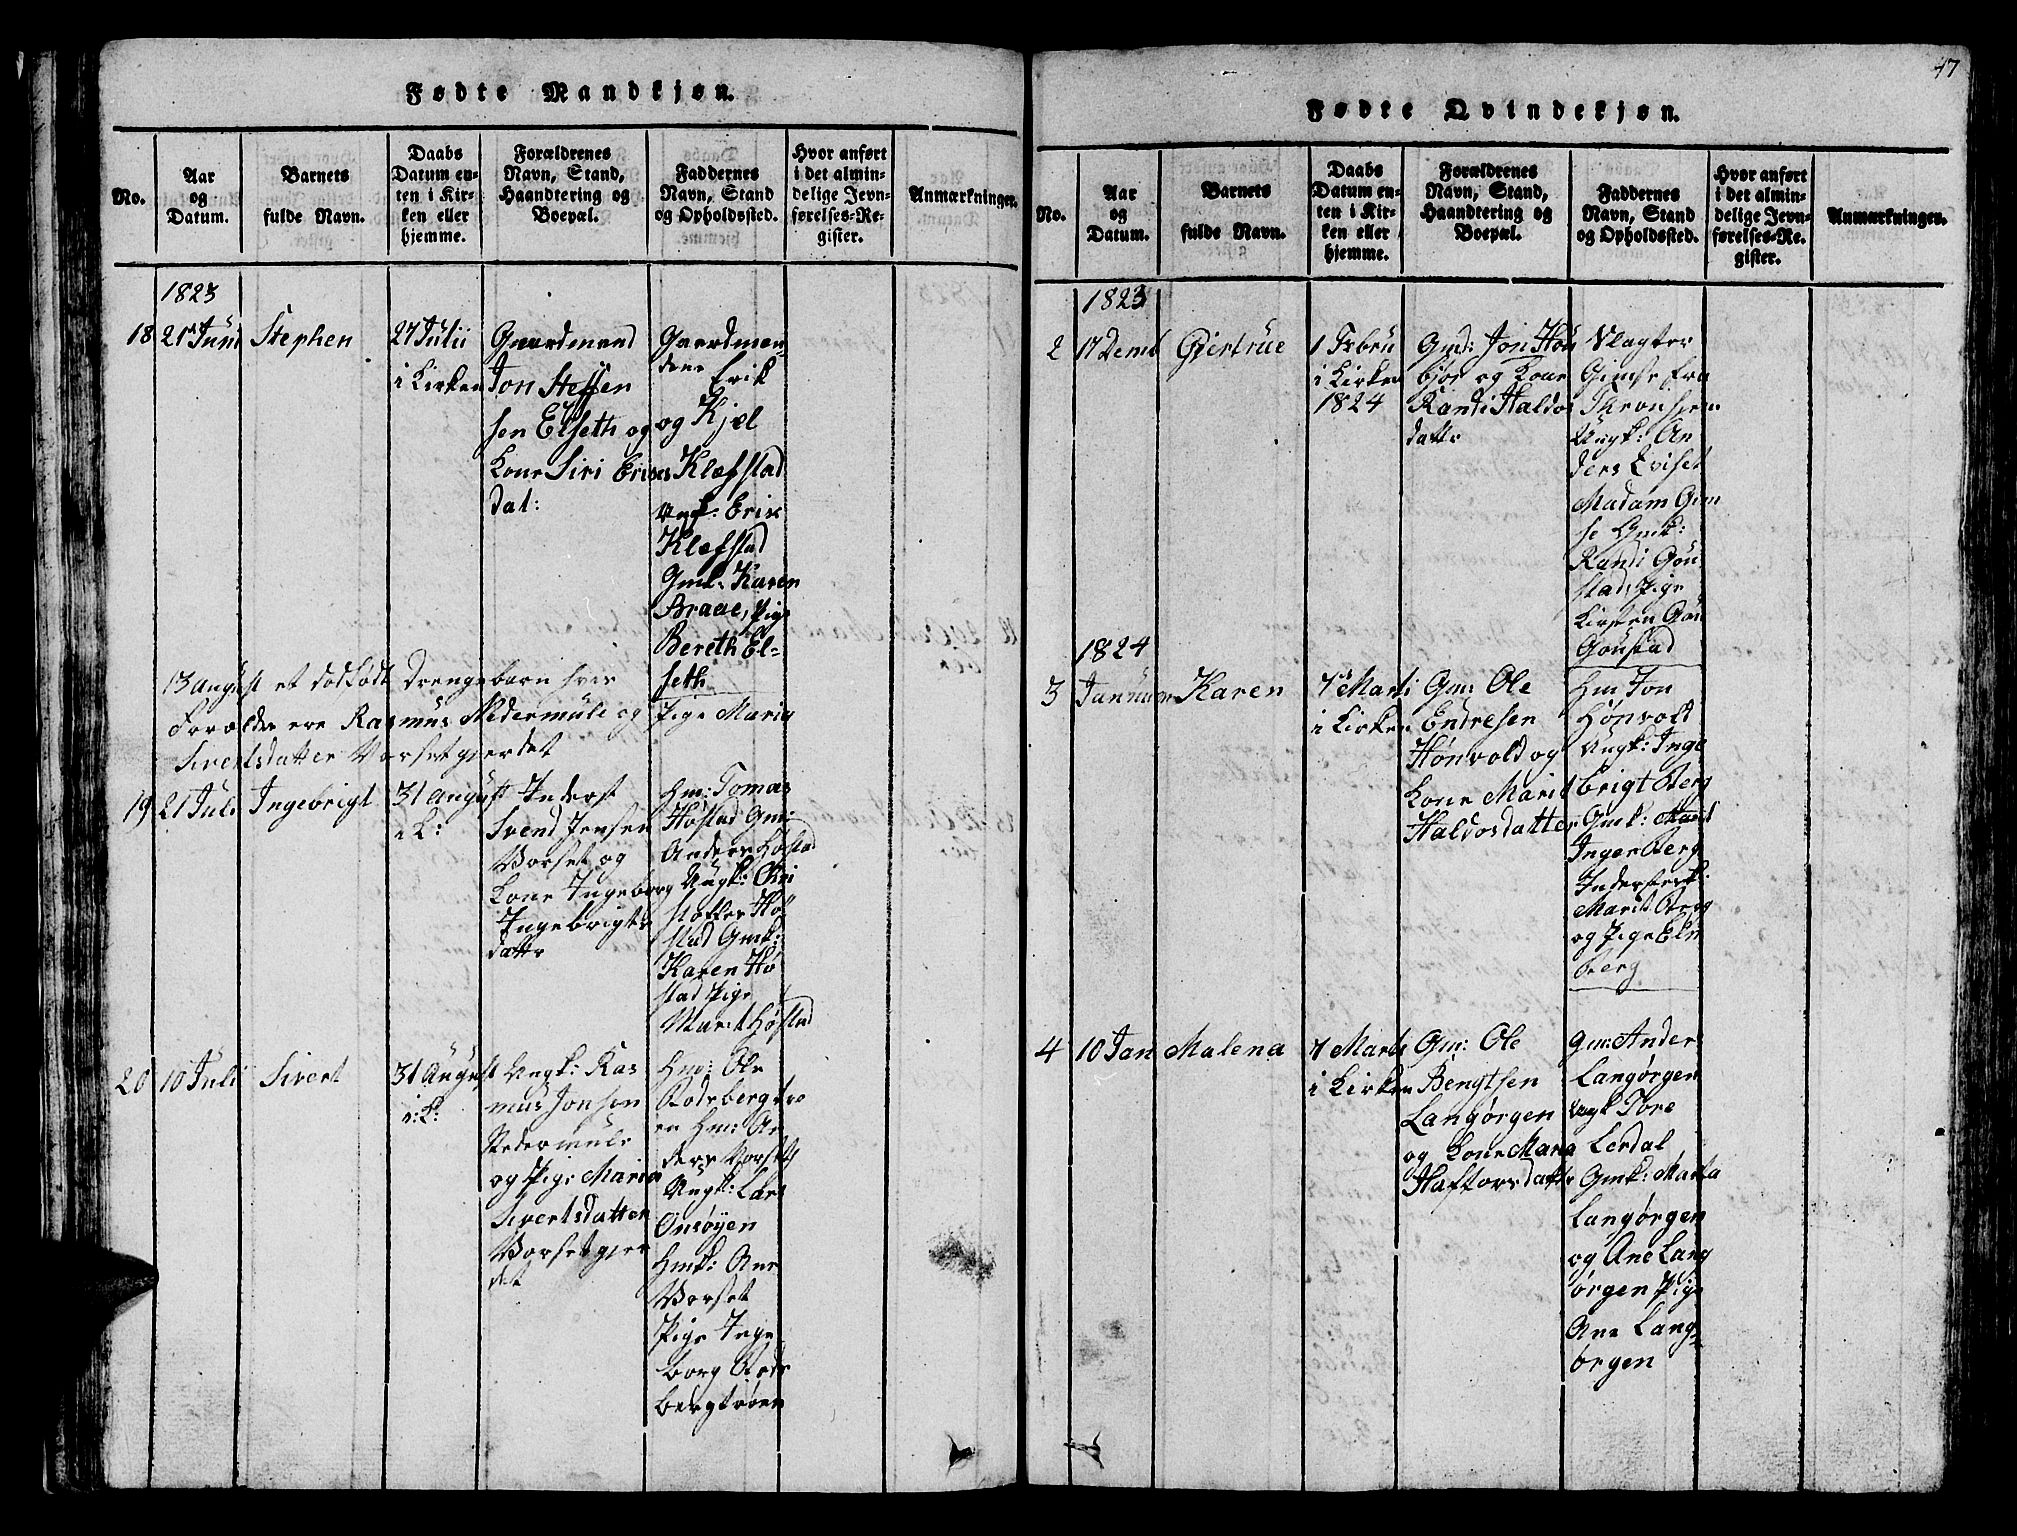 Fødte Mandkjøn.
No.
Aar
og
Datum.
Barnets
fulde Navn.
Daabs
Datum en-
ten i Kir-
ken eller
hjemme.
Forældrenes
Navn, Stand,
Haandtering og
Boepæl.
Faddernes
Navn, Stand
og Opholdssted.
Hvor anført
i det almin-
delige Jevn-
førelses-Re-
gister.
Anmærkninger.
1823
18
21 Juni
Stephen
27 Julii
i Kirken
Gaardmand
Jon Steffen
sen Elseth og
Kone Siri Eriks
dat:
Gaardmæn-
dene Erik
og Kjel
Klæfstad
Ungk: Erik
Klæfstad
Gmk: Karen
Braae, Pige
Bereth El-
seth
13 august et dødfødt Drengebarn hvis
Forældre ere Rasmus Nedermule og Pige Maria
Sivertsdatter Vorsetgjerdet
19
21 Juli
Ingebrigt
31 August
i K:
Inderst
Svend Jensen
Vorset og
Kone Ingeborg
Ingebrigts
dattr
Hm: Tomas
Høstad Gm:
Anders Høstad
Ungk: Chri
stoffer Hø
stad Gmk:
Karen Hø
stad Pige
Marit Høstad
20
10 Juli
Sivert
31 August
i K:
Ungk: Ras
mus Jonsen
Nedermule
og Pige Maria
Sivertsdatter
Vorsetgjer
det
Hm: Ole
Rodsbergtrø
en Hm: An
ders Vorseth
Ungk: Lars
Onsøyen
Hmk: Ane
Vorset
Pige Inge
borg Rods
bergtrøen
47
Fødte Qvindekjøn.
No.
Aar
og
Datum.
Barnets
fulde Navn.
Daabs
Datum en-
ten i Kir-
ken eller
hjemme.
Forældrenes
Navn, Stand,
Haandtering og
Boepæl.
Faddernes
Navn, Stand
og Opholdssted.
Hvor anført
i det almin-
delige Jevn-
førelses-Re-
gister.
Anmærkninger.
1823
2
17 Demb
Giertrue
1 Febru
i Kirken
1824
Gmd: Jon Hou
bjor og Kone
Randi Haldos
dattr
Gimse fra
Ungk: An
ders Qviset
Madam Gim
se Gmk:
Randi Gou
stad, Pige
Kirsten Gou
Goustad
1824
3
Januar
Karen
7 Marti
i Kirken
Gm: Ole
Endresen
Hønvold og
Kone Marit
Haldosdatter
Hm Jon
Hønvold
Ungk: Inge
brigt Berg
Gmk: Marit
Inger Berg
Inderstk:
Marit Berg
og Pige Eln
Berg
4
10 Jan
Malena
7 Marti
i Kirken
Gm: Ole
Bengtsen
Langørgen
og Kone Maria
Haftorsdattr
gm: Anders
Langørgen
Ungk Tore
Lerdal
Gmk: Marta
Langørgen
og Ane Lang
ørgen Pige
Ane Lang-
ørgen